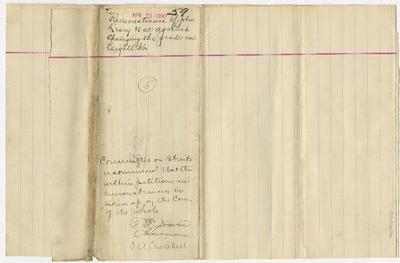 APR 23 1890 59
Remonstrance of John
Leary et al against
Changing the grade on
Eighth St
5
Committee on Streets
recommend that the
within petition and
remonstrances be
taken up in the Com.
of the whole
Chairman